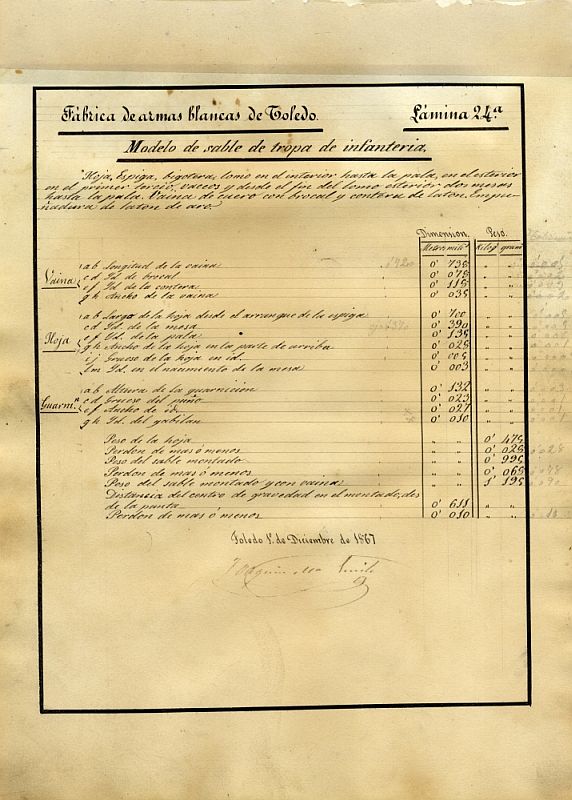 Fábrica de armas blancas de Toledo. Lámina 24.ª
Modelo de sable de tropa de infanteria.
Hoja, Espiga, bigotera, lomo en el interior hasta la pala, en el esterior
en el primer tercio, vaceos y desde el fin del lomo esterior dos mesas
hasta la pala. Vaina de cuero con brocal y contera de laton. Empu-
ñadura de laton de aro.
Dimension. Peso.
Metros milis Kilogs grams
Vaina
a b Longitud de la vaina 0' 735 " "
c d Id. de brocal 0' 078 " "
e f Id. de la contera 0' 115 " "
g h Ancho de la vaina 0' 035 " "
Hoja
a b Largo de la hoja desde el arranque de la espiga 0' 700 " "
c d Id. de la mesa 0' 390 " "
e f Id. de la pala 0' 135 " "
g h Ancho de la hoja en la parte de arriba 0' 025 " "
i j Grueso de la hoja en id. 0' 005 " "
l m Id. en el nacimiento de la mesa 0' 003 " "
Guarnn
a b Altura de la guarnicion 0' 132 " "
c d Grueso del puño 0' 023 " "
e f Ancho de id. 0' 027 " "
g h Id. del gabilan 0' 010 " "
Peso de la hoja " " 0' 475
Perdon de mas ó menos " " 0' 025
Peso del sable montado " " 0' 995
Perdon de mas ó menos " " 0' 065
Peso del sable montado y con vaina " " 1' 195
Distancia del centro de gravedad en el montado, des
de la punta 0' 611 " "
Perdon de mas ó menos 0' 010 " "
Toledo 1.º de Diciembre de 1867
Joaquin